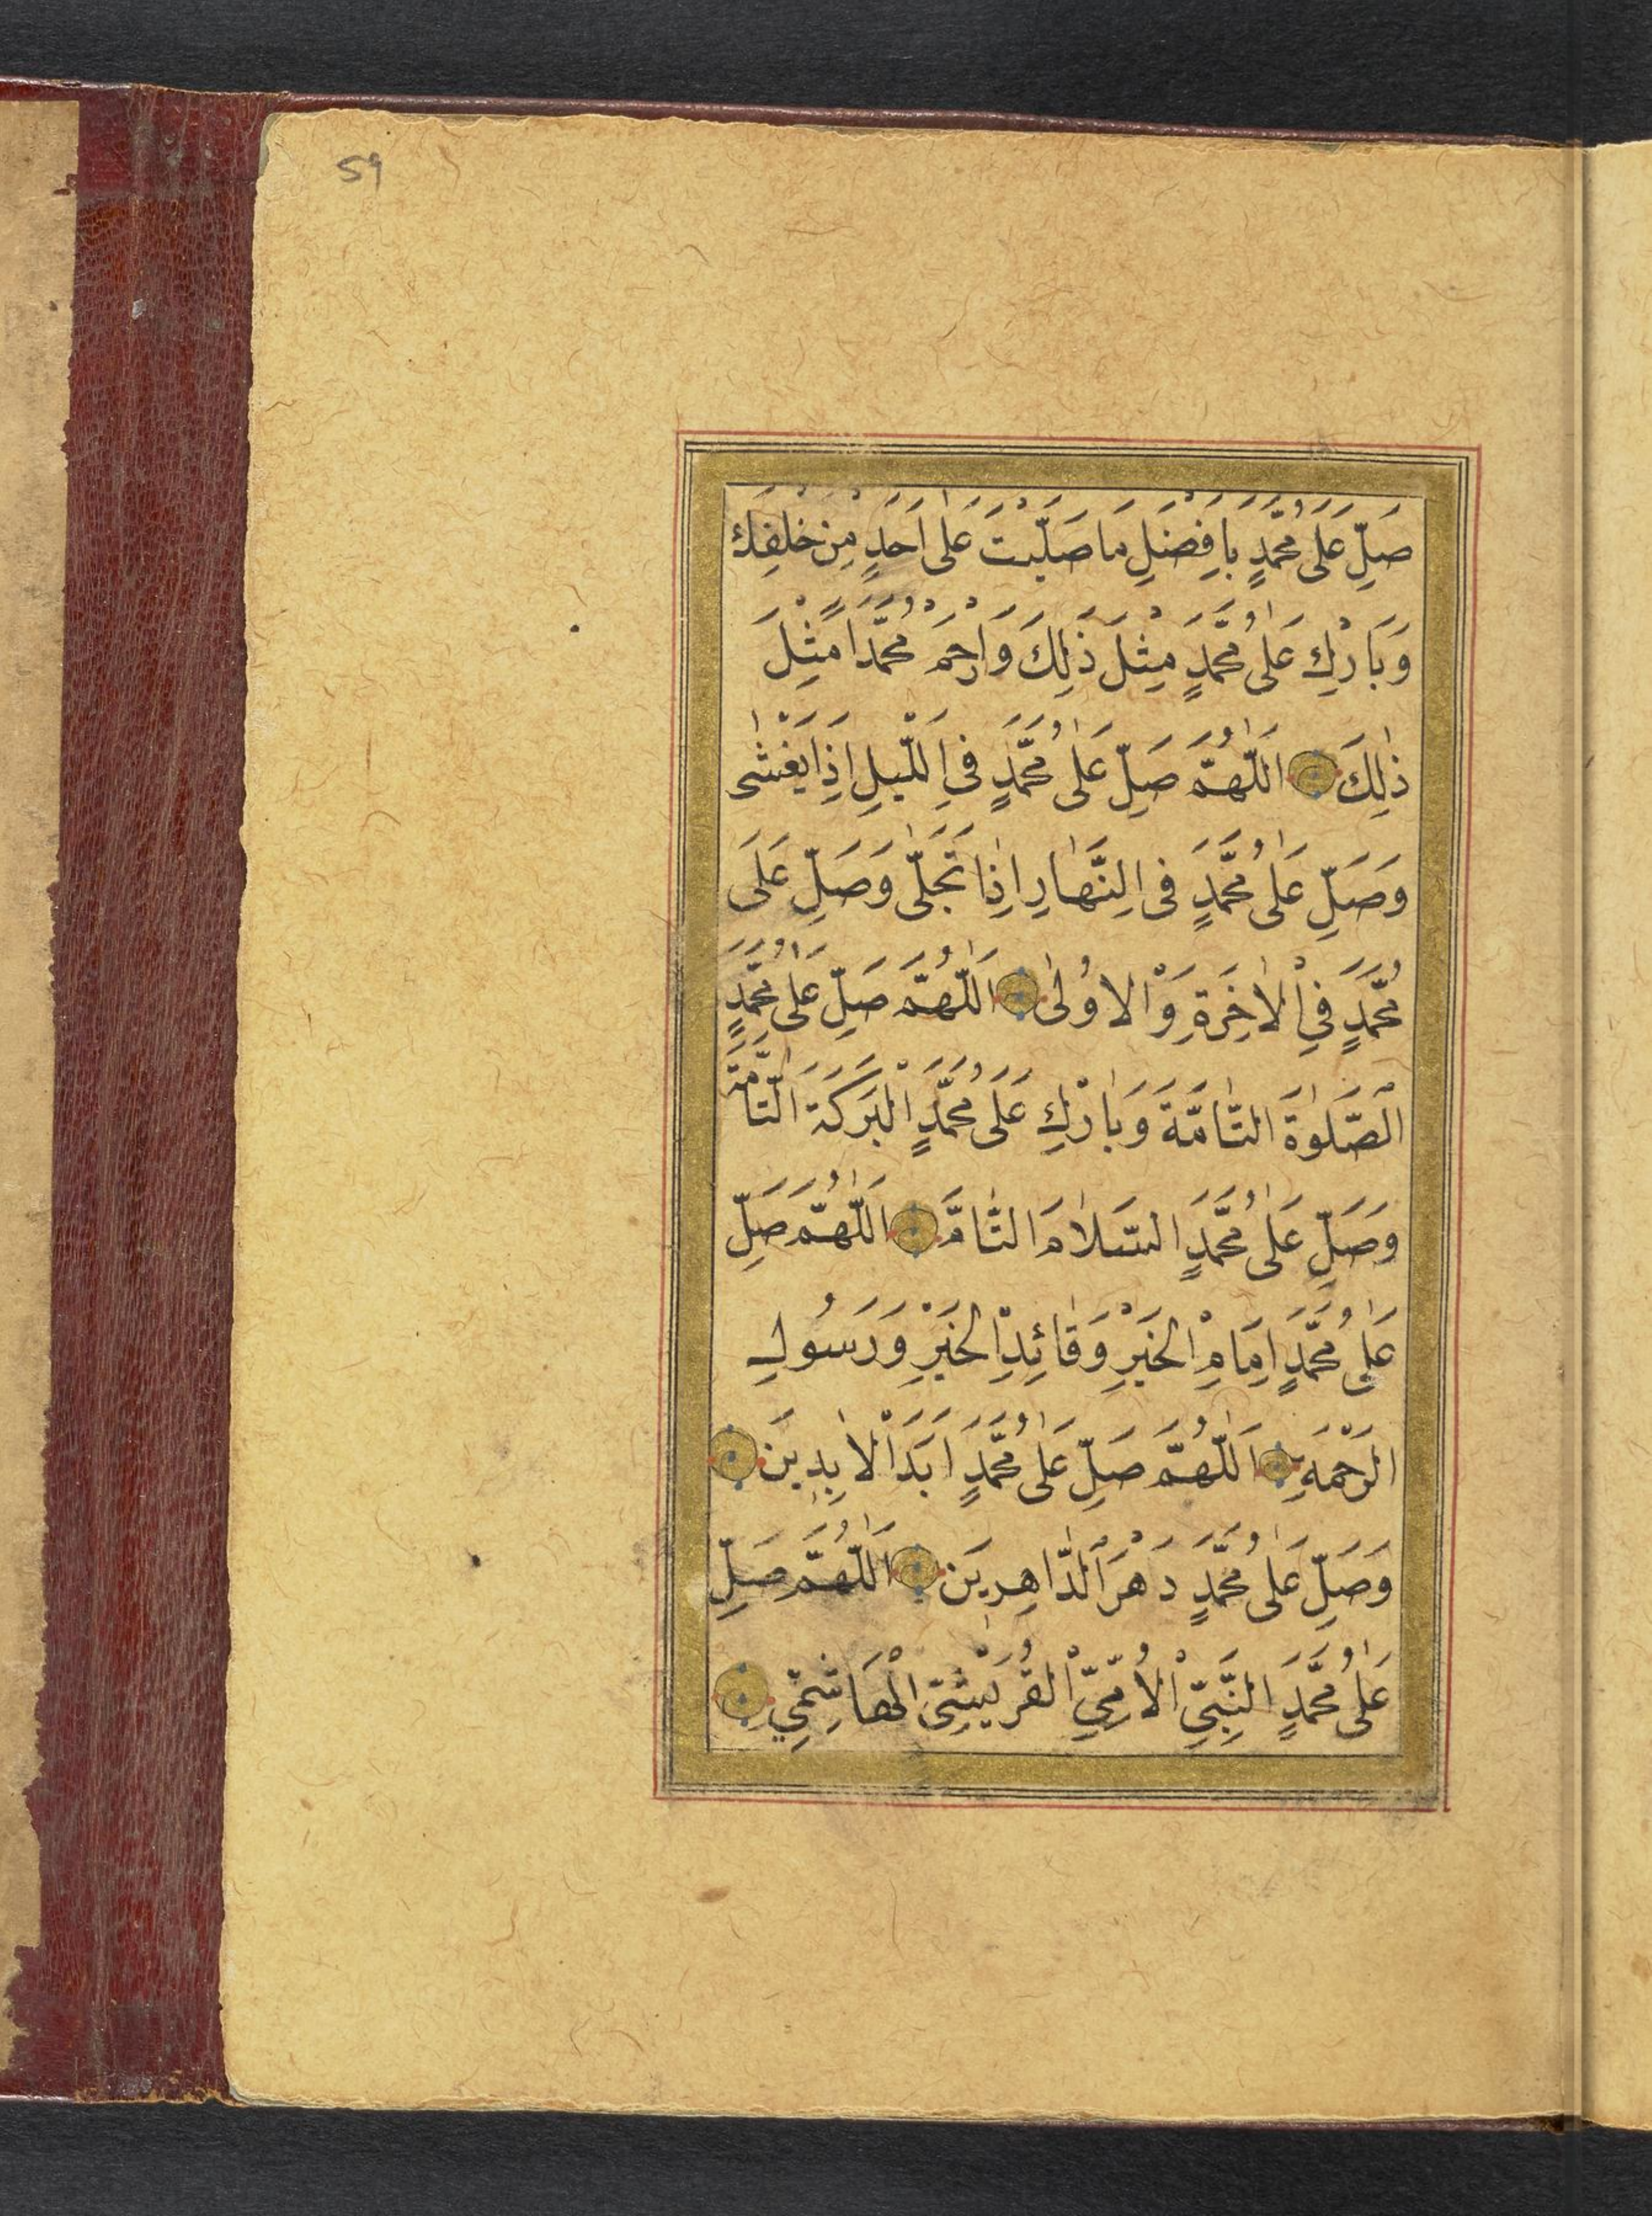 59
صَلِّ عَلَى مُحَمَّدٍ بِاَفْضَلِ مَا صَلَّيْتَ عَلٰى اَحَدٍ مِنْ خَلْقِكَ
وَبَارِكْ عَلٰى مُحَمَّدٍ مِثْلَ ذٰلِكَ وَارْحَمْ مُحَمَّدًا مِثْلَ
ذٰلِكَ اَللّٰهُمَّ صَلِّ عَلٰى مُحَمَّدٍ فِى اللَّيْلِ اِذَا يَغْشٰى
وَصَلِّ عَلٰى مُحَمَّدٍ فِى النَّهَارِ اِذَا تَجَلّٰى وَصَلِّ عَلَى
مُحَمَّدٍ فِي الْاٰخِرَةِ وَالْاُوْلٰى اَللّٰهُمَّ صَلِّ عَلٰى مُحَمَّدٍ
الصَّلٰوةَ التَّامَّةَ وَبَارِكْ عَلَى مُحَمَّدٍ الْبَرَكَةَ التَّامَّةَ
وَصَلِّ عَلٰى مُحَمَّدٍ السَّلَامَ التَّامَّ اَللّٰهُمَّ صَلِّ
عَلٰى مُحَمَّدٍ اِمَامِ الْخَيْرِ وَقَائِدِ الْخَيْرِ وَرَسُولِ
الرَّحْمَةِ اَللّٰهُمَّ صَلِّ عَلٰى مُحَمَّدٍ اَبَدَ الْاٰبِدِينَ
وَصَلِّ عَلٰى مُحَمَّدٍ دَهْرَ الدَّاهِرِينَ اَللّٰهُمَّ صَلِّ
عَلٰى مُحَمَّدٍ النَّبِيِّ الْاُمِّيِّ الْقُرَيْشِيِّ الْهَاشِمِيِّ